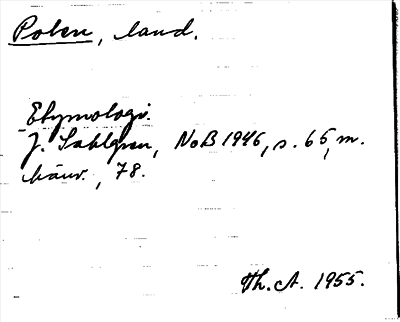 Polen, land.
Etymologi.
J. Sahlgren, NoB 1946, s. 65, m.
hänv., 78.
Th. A. 1955.